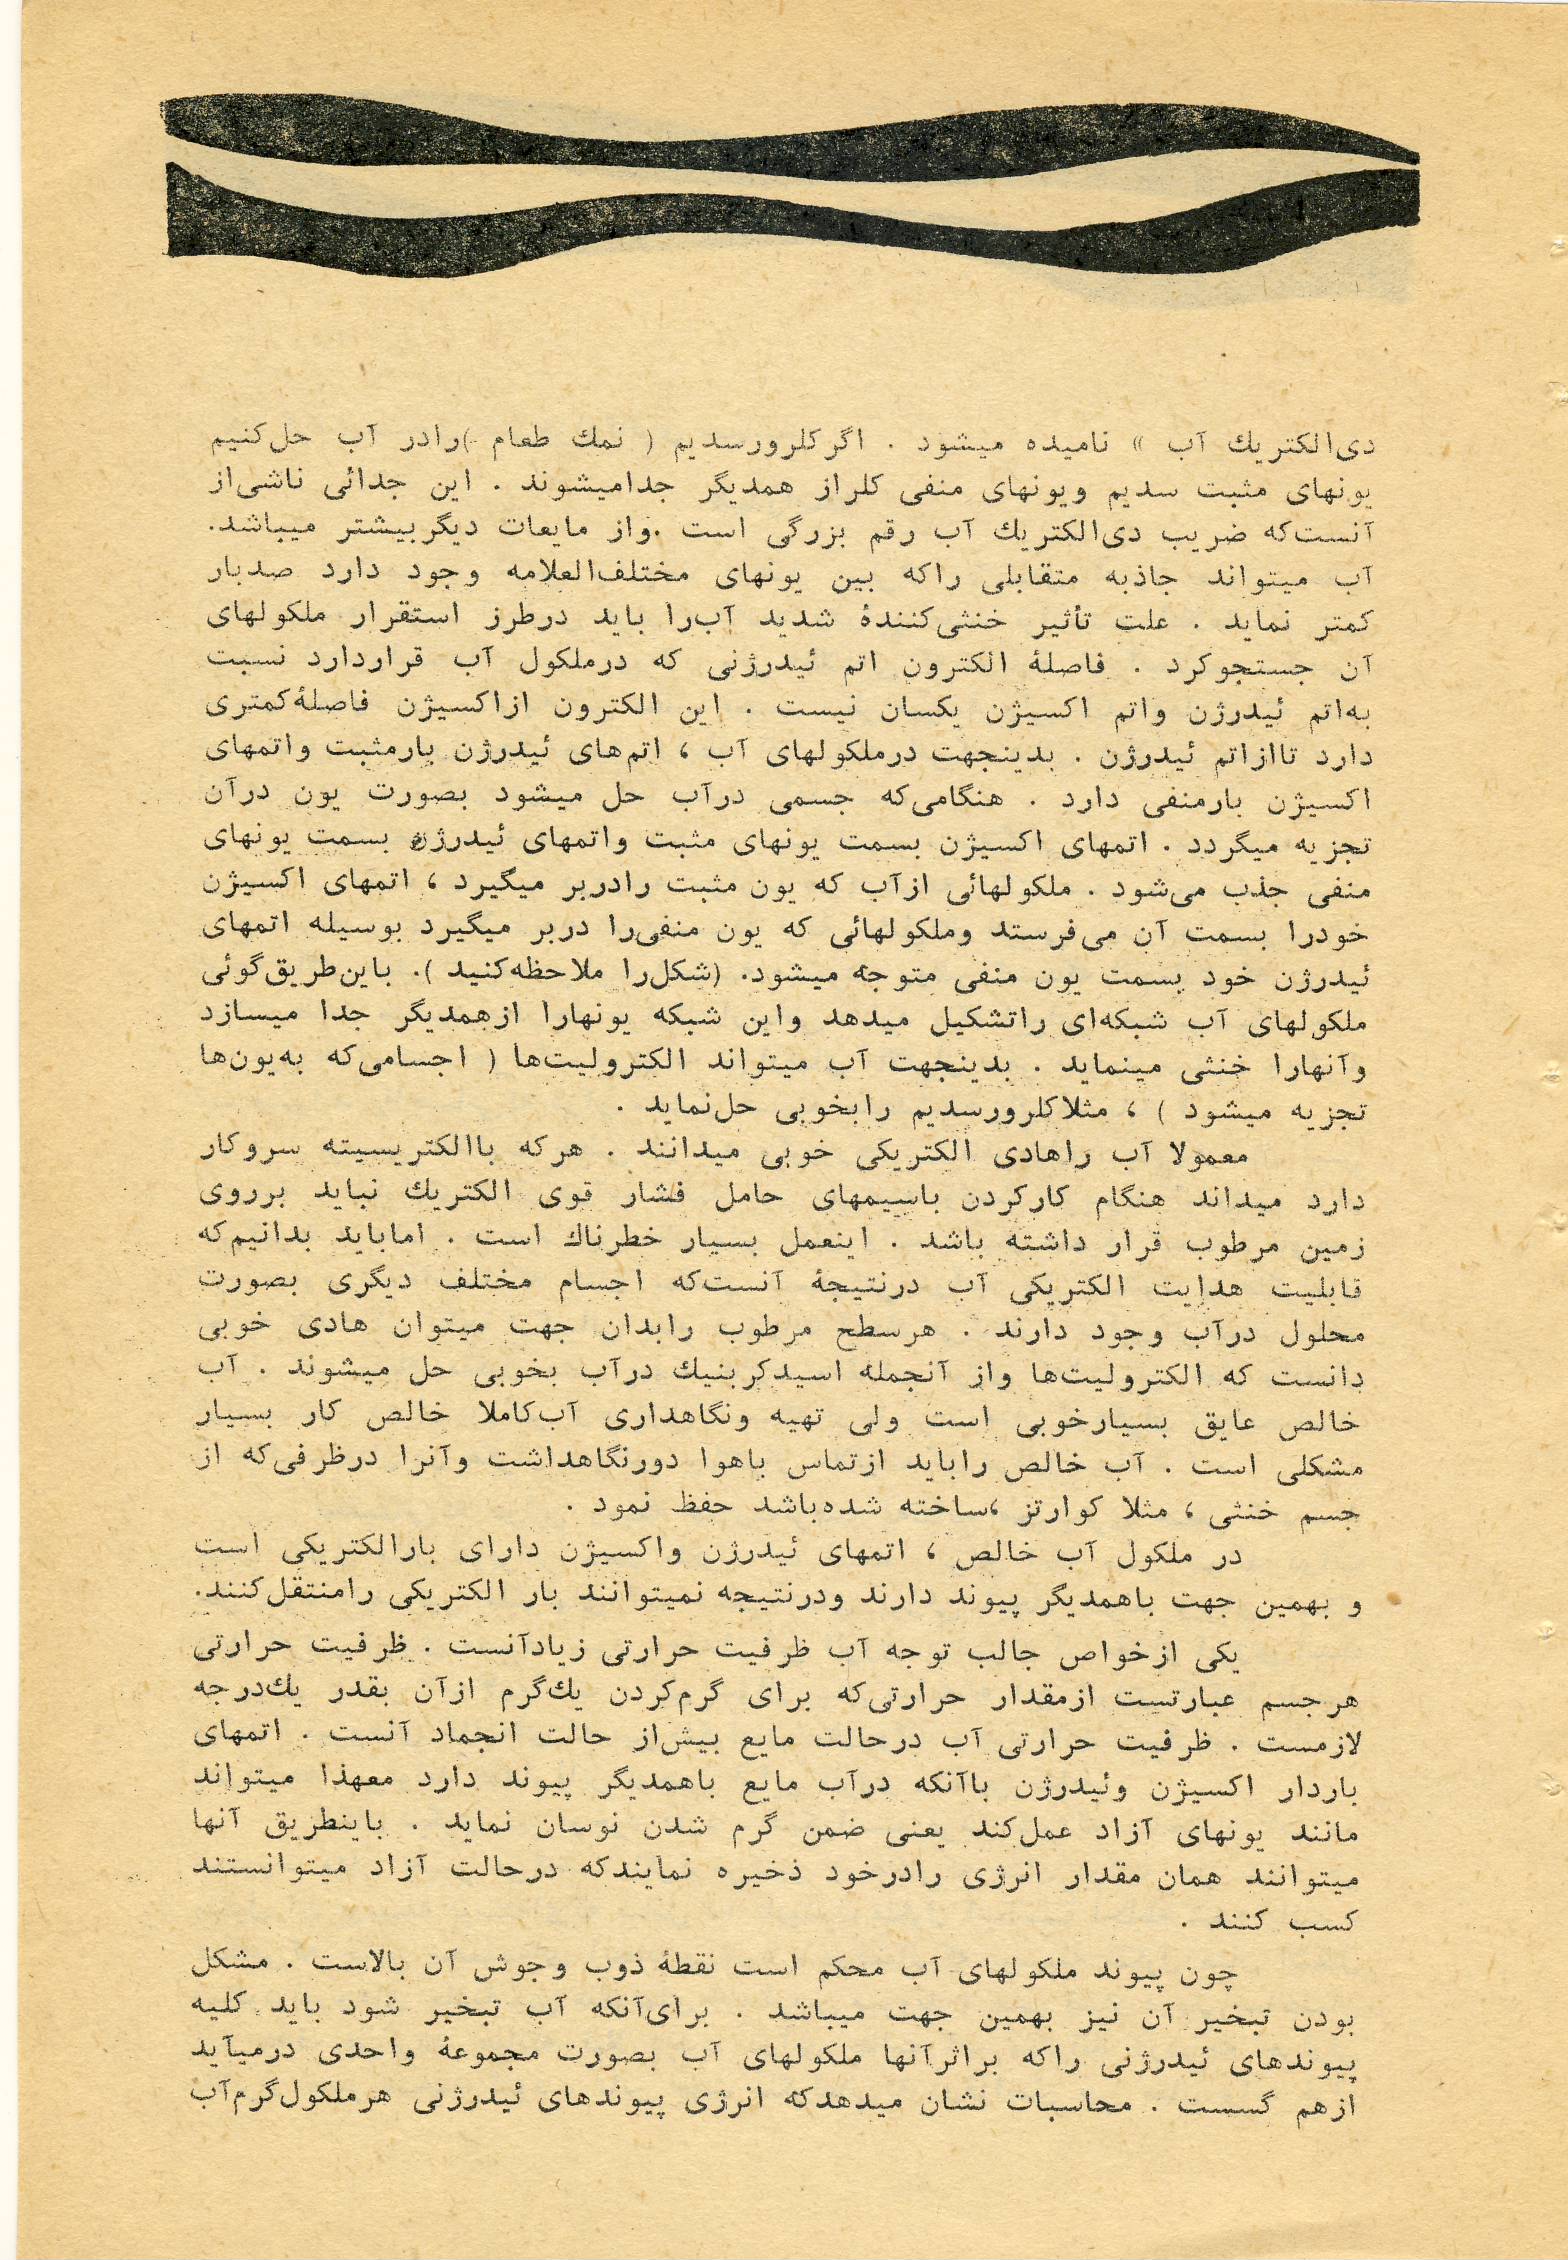 دی‌الکتریك آب » نامیده میشود . اگر کلرورسدیم ( نمك طعام )رادر آب حل‌کنیم
یونهای مثبت سدیم ویونهای منفی کلراز همدیگر جدامیشوند . این جدائی ناشی‌از
آنست‌که ضریب دی‌الکتریك آب رقم بزرگی است .واز مایعات دیگربیشتر میباشد.
آب میتواند جاذبه متقابلی راکه بین یونهای مختلف‌العلامه وجود دارد صدبار
کمتر نماید . علت تأثیر خنثی‌کنندهٔ شدید آب‌را باید درطرز استقرار ملکولهای
آن جستجوکرد . فاصلهٔ الکترون اتم ئیدرژنی که درملکول آب قراردارد نسبت
به‌اتم ئیدرژن واتم اکسیژن یکسان نیست . این الکترون ازاکسیژن فاصلهٔ‌کمتری
دارد تاازاتم ئیدرژن . بدینجهت درملکولهای آب ، اتم‌های ئیدرژن بارمثبت واتمهای
اکسیژن بارمنفی دارد . هنگامی‌که جسمی درآب حل میشود بصورت یون درآن
تجزیه میگردد . اتمهای اکسیژن بسمت یونهای مثبت واتمهای ئیدرژن بسمت یونهای
منفی جذب می‌شود . ملکولهائی ازآب که یون مثبت رادربر میگیرد ، اتمهای اکسیژن
خودرا بسمت آن می‌فرستد وملکولهائی که یون منفی‌را دربر میگیرد بوسیله اتمهای
ئیدرژن خود بسمت یون منفی متوجه میشود. (شکل‌را ملاحظه‌کنید ). باین‌طریق‌گوئی
ملکولهای آب شبکه‌ای راتشکیل میدهد واین شبکه یونهارا ازهمدیگر جدا میسازد
وآنهارا خنثی مینماید . بدینجهت آب میتواند الکترولیت‌ها ( اجسامی‌که به‌یون‌ها
تجزیه میشود ) ، مثلاکلرورسدیم رابخوبی حل‌نماید .
معمولا آب راهادی الکتریکی خوبی میدانند . هرکه باالکتریسیته سروکار
دارد میداند هنگام کارکردن باسیمهای حامل فشار قوی الکتریك نباید برروی
زمین مرطوب قرار داشته باشد . اینعمل بسیار خطرناك است . اماباید بدانیم‌که
قابلیت هدایت الکتریکی آب درنتیجهٔ آنست‌که اجسام مختلف دیگری بصورت
محلول درآب وجود دارند . هرسطح مرطوب رابدان جهت میتوان هادی خوبی
دانست که الکترولیت‌ها واز آنجمله اسیدکربنیك درآب بخوبی حل میشوند . آب
خالص عایق بسیارخوبی است ولی تهیه ونگاهداری آب‌کاملا خالص کار بسیار
مشکلی است . آب خالص راباید ازتماس باهوا دورنگاهداشت وآنرا درظرفی‌که از
جسم خنثی ، مثلا کوارتز ،ساخته شده‌باشد حفظ نمود .
در ملکول آب خالص ، اتمهای ئیدرژن واکسیژن دارای بارالکتریکی است
و بهمین جهت باهمدیگر پیوند دارند ودرنتیجه نمیتوانند بار الکتریکی رامنتقل‌کنند.
یکی ازخواص جالب توجه آب ظرفیت حرارتی زیادآنست . ظرفیت حرارتی
هرجسم عبارتست ازمقدار حرارتی‌که برای گرم‌کردن یك‌گرم ازآن بقدر یك‌درجه
لازمست . ظرفیت حرارتی آب درحالت مایع بیش‌از حالت انجماد آنست . اتمهای
باردار اکسیژن وئیدرژن باآنکه درآب مایع باهمدیگر پیوند دارد معهذا میتواند
مانند یونهای آزاد عمل‌کند یعنی ضمن گرم شدن نوسان نماید . باینطریق آنها
میتوانند همان مقدار انرژی رادرخود ذخیره نمایندکه درحالت آزاد میتوانستند
کسب کنند .
چون پیوند ملکولهای آب محکم است نقطهٔ ذوب وجوش آن بالاست . مشکل
بودن تبخیر آن نیز بهمین جهت میباشد . برای‌آنکه آب تبخیر شود باید کلیه
پیوندهای ئیدرژنی راکه براثرآنها ملکولهای آب بصورت مجموعهٔ واحدی درمیآید
ازهم گسست . محاسبات نشان میدهدکه انرژی پیوندهای ئیدرژنی هرملکول‌گرم‌آب